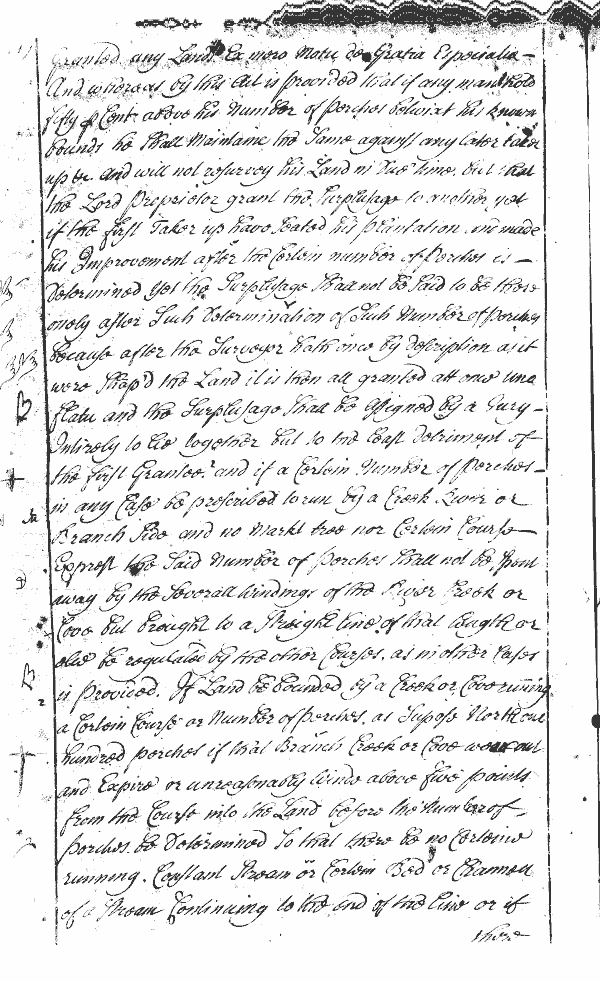 Granted any Lands Ex mero Motu de Gratia Especialis –
And whereas by this Act is provided that if any man hold
fifty p Cent above his Number of perches betwixt his known
bounds he Shall Maintaine the Same against any later taker
up &c and will not resurvey his Land in Due time, but that
the Lord Proprietor grant the Surplusage to another yet
if the first Taker up have Seated his plantation and made
his Improvement after the Certein number of Perches is –
Determined yet the Surplusage Shall not be Said to be there
onely after Such Determination of Such Number of perches
because after the Surveyor hath once by Description as it
were Shap'd the Land it is then all granted att once Una
flatu and the Surplusage Shall be assigned by a Jury –
Intirely to lie together but to the least Detriment of
the first Grantee: and if a Certein Number of Perches –
in any Case be prescribed to run by a Creek River or
Branch Side and no Markt tree nor Certein Course
Exprest the Said Number of perches Shall not be Spent
away by the Severall windings of the River Creek or
Cove but brought to a Streight line of that length or
else be regulated by the other Courses, as in other Cases
is Provided. If Land be bounded by a Creek or Cove runing
a Certein Course or Number of perches, as Supose North one
hundred perches if that Branch Creek or Cove wear out
and Expire or unreasonably Winds above five points
from the Course into the Land before the Number of
perches be Determined So that there be no Certeine
running. Constant Stream or Certein Bed or Channell
of a Stream Continuing to the end of the line or if
there